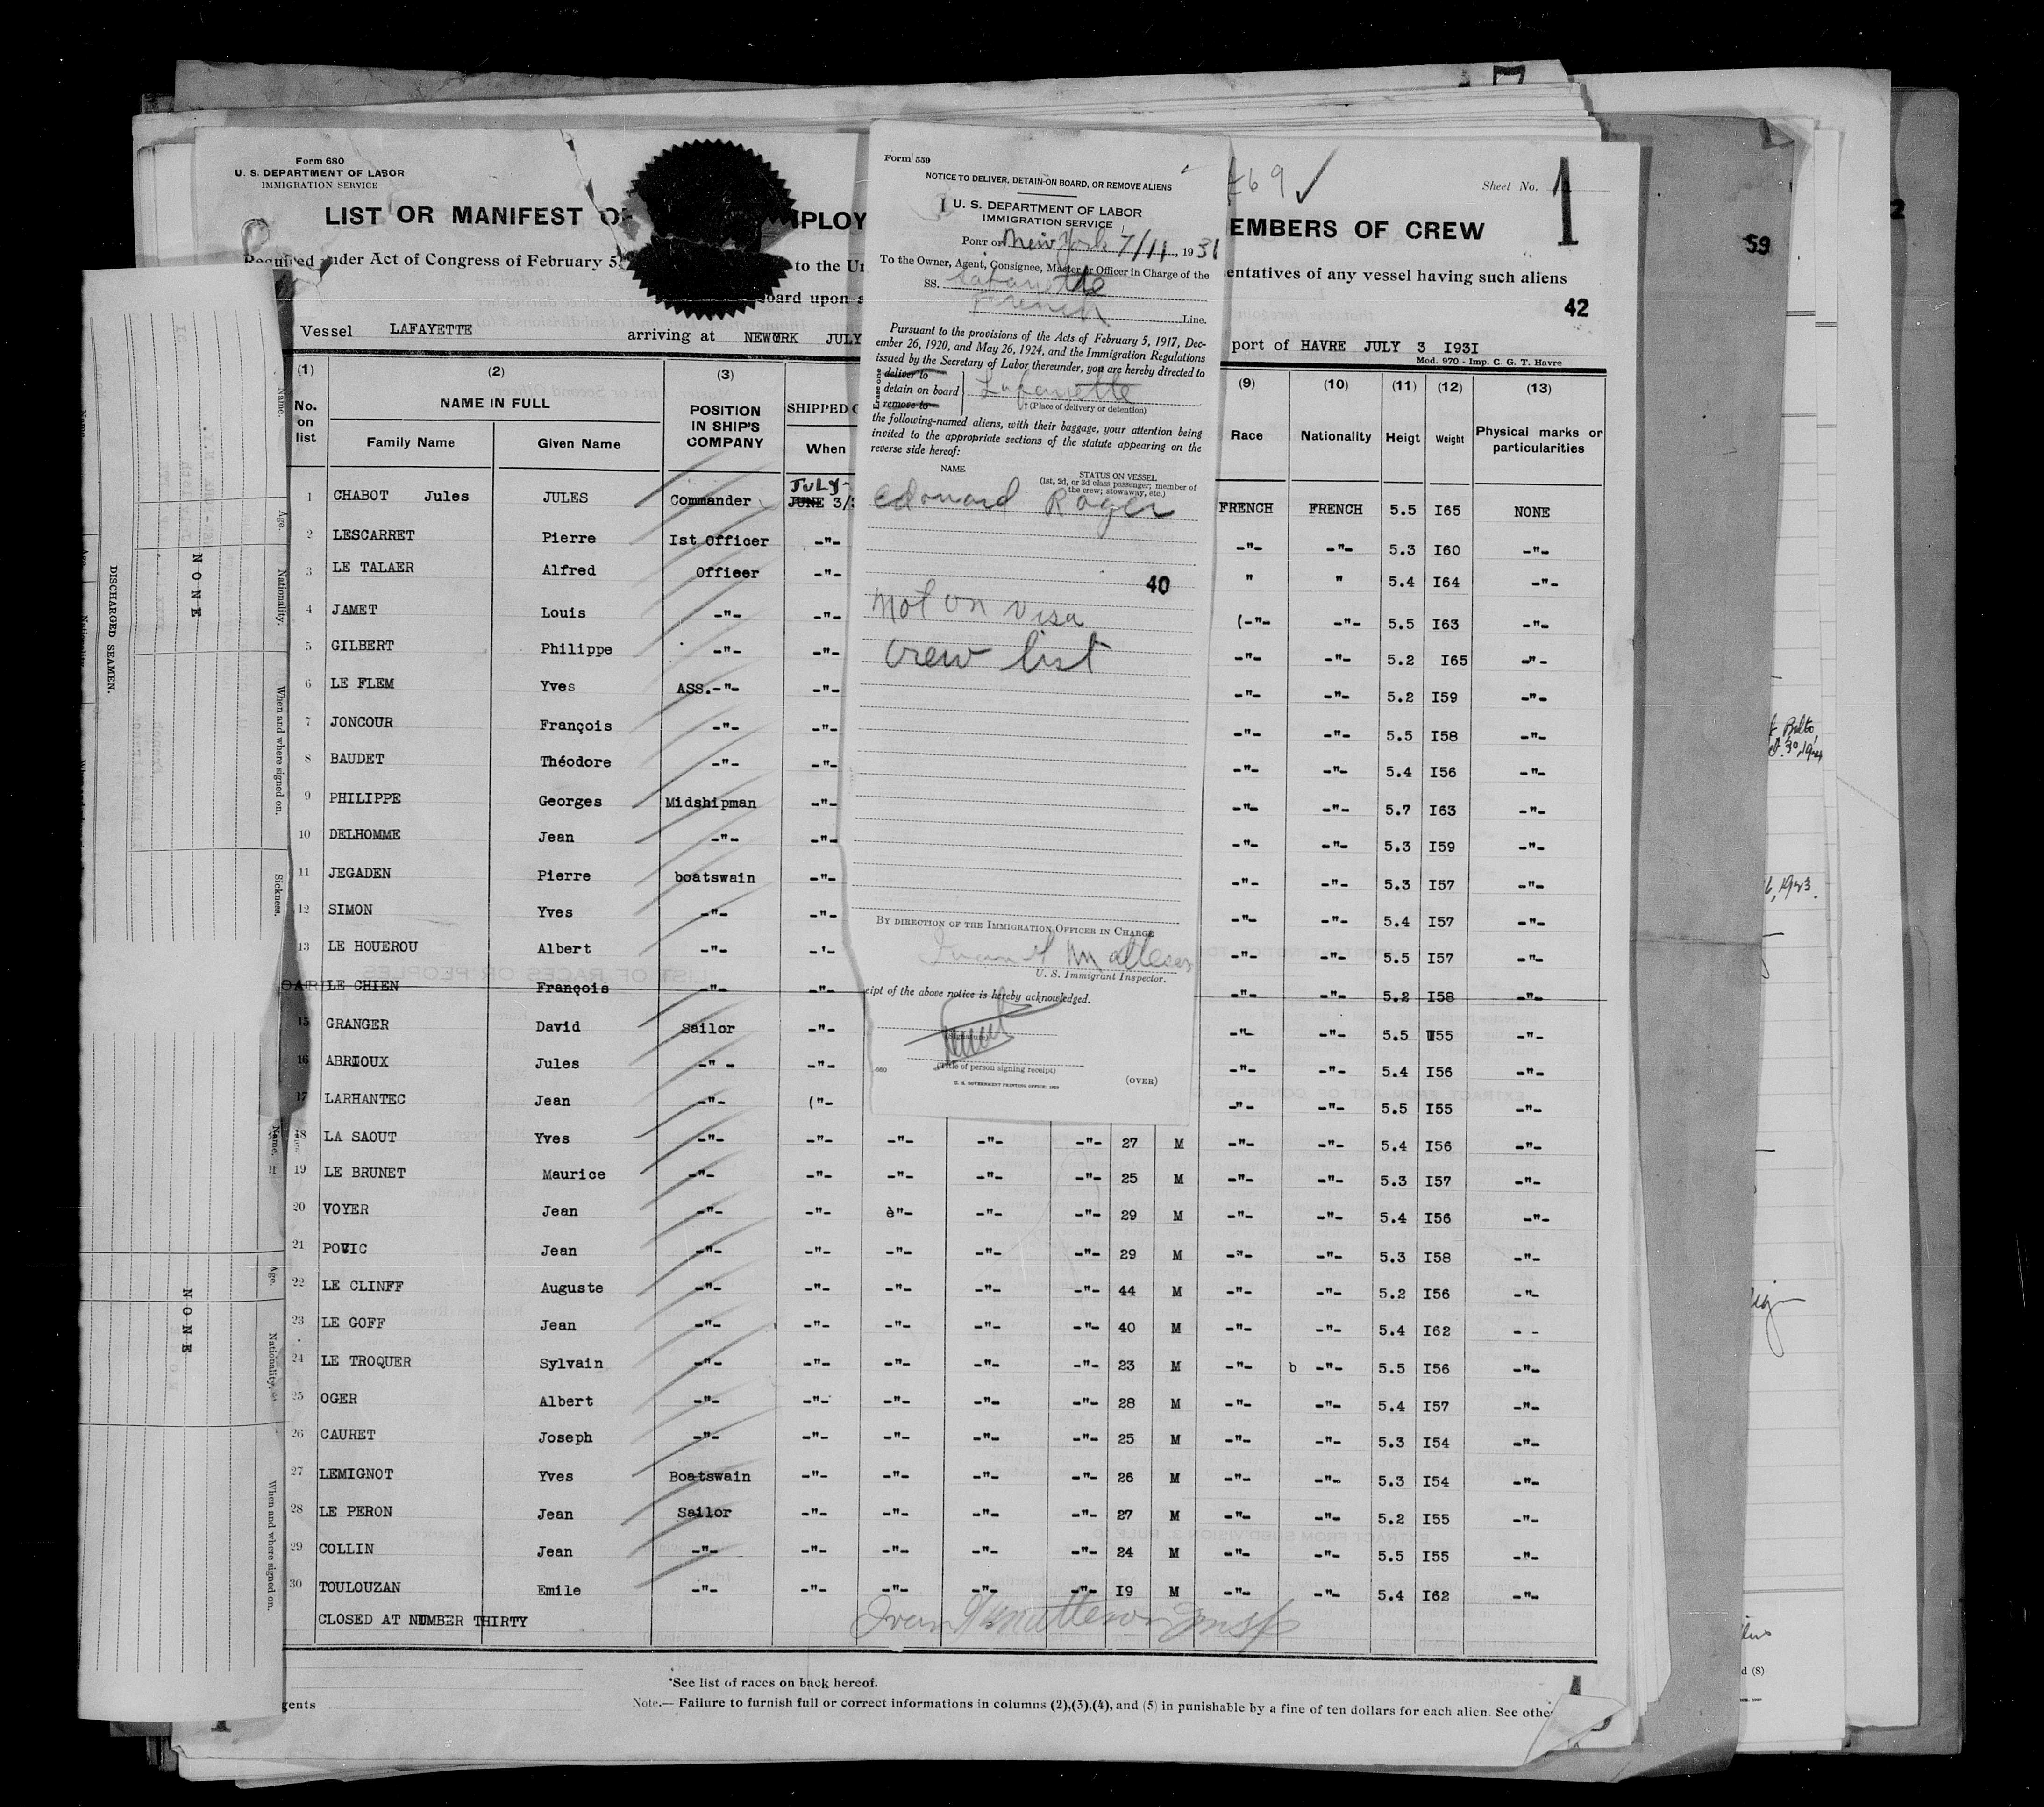 Form 680
U. S. DEPARTMENT OF LABOR
IMMIGRATION SERVICE
69 ✓
Sheet No. 1
LIST OR MANIFEST OF MPLOY EMBERS OF CREW
Required under Act of Congress of February 5, to the Un entatives of any vessel having such aliens
board upon a
59
42
Vessel LAFAYETTE arriving at NEWYORK JULY port of HAVRE JULY 3 I93I
Mod. 970 - Imp. C. G. T. Havre
(1) (2) (3) (9) (10) (11) (12) (13)
No. on list NAME IN FULL POSITION IN SHIP'S COMPANY SHIPPED Race Nationality Heigt Weight Physical marks or particularities
Family Name Given Name When
1 CHABOT Jules JULES Commander JULY- JUNE 3/3 FRENCH FRENCH 5.5 I65 NONE
2 LESCARRET Pierre Ist Officer -"- -"- -"- 5.3 I60 -"-
3 LE TALAER Alfred Officer -"- " " 5.4 I64 -"-
4 JAMET Louis -"- -"- (-"- -"- 5.5 I63 -"-
5 GILBERT Philippe -"- -"- -"- -"- 5.2 I65 -"-
6 LE FLEM Yves ASS.-"- -"- -"- -"- 5.2 I59 -"-
7 JONCOUR François -"- -"- -"- -"- 5.5 I58 -"-
8 BAUDET Théodore -"- -"- -"- -"- 5.4 I56 -"-
9 PHILIPPE Georges Midshipman -"- -"- -"- 5.7 I63 -"-
10 DELHOMME Jean -"- -"- -"- -"- 5.3 I59 -"-
11 JEGADEN Pierre boatswain -"- -"- -"- 5.3 I57 -"-
12 SIMON Yves -"- -"- -"- -"- 5.4 I57 -"-
13 LE HOUEROU Albert -"- -'- -"- -"- 5.5 I57 -"-
LE CHIEN François -"- -"- -"- -"- 5.2 I58 -"-
15 GRANGER David Sailor -"- -"- -"- 5.5 I55 -"-
16 ABRIOUX Jules -" - -"- -"- -"- 5.4 I56 -"-
17 LARHANTEC Jean -"- ("- -"- -"- 5.5 I55 -"-
18 LA SAOUT Yves -"- -"- -"- -"- -"- 27 M -"- -"- 5.4 I56 -"-
19 LE BRUNET Maurice -"- -"- -"- -"- -"- 25 M -"- -"- 5.3 I57 -"-
20 VOYER Jean -"- -"- è"- -"- -"- 29 M -"- -"- 5.4 I56 -"-
21 POVIC Jean -"- -"- -"- -"- -"- 29 M -"- -"- 5.3 I58 -"-
22 LE CLINFF Auguste -"- -"- -"- -"- -"- 44 M -"- -"- 5.2 I56 -"-
23 LE GOFF Jean -"- -"- -"- -"- -"- 40 M -"- -"- 5.4 I62 - -
24 LE TROQUER Sylvain -"- -"- -"- -"- -"- 23 M -"- b -"- 5.5 I56 -"-
25 OGER Albert -"- -"- -"- -"- -"- 28 M -"- -"- 5.4 I57 -"-
26 CAURET Joseph -"- -"- -"- -"- -"- 25 M -"- -"- 5.3 I54 -"-
27 LEMIGNOT Yves Boatswain -"- -"- -"- -"- 26 M -"- -"- 5.3 I54 -"-
28 LE PERON Jean Sailor -"- -"- -"- -"- 27 M -"- -"- 5.2 I55 -"-
29 COLLIN Jean -"- -"- -"- -"- -"- 24 M -"- -"- 5.5 I55 -"-
30 TOULOUZAN Emile -"- -"- -"- -"- -"- I9 M -"- -"- 5.4 I62 -"-
CLOSED AT NUMBER THIRTY
Ivan Matteson Insp
*See list of races on back hereof.
gents
Note.— Failure to furnish full or correct informations in columns (2),(3),(4), and (5) in punishable by a fine of ten dollars for each alien. See other
Form 559
NOTICE TO DELIVER, DETAIN ON BOARD, OR REMOVE ALIENS
U. S. DEPARTMENT OF LABOR
IMMIGRATION SERVICE
PORT OF New York 7/11, 1931
To the Owner, Agent, Consignee, Master or Officer in Charge of the
SS. Lafayette
French Line.
Pursuant to the provisions of the Acts of February 5, 1917, Dec-
ember 26, 1920, and May 26, 1924, and the Immigration Regulations
issued by the Secretary of Labor thereunder, you are hereby directed to
Erase one deliver to
detain on board Lafayette
remove to (Place of delivery or detention)
the following-named aliens, with their baggage, your attention being
invited to the appropriate sections of the statute appearing on the
reverse side hereof:
NAME STATUS ON VESSEL
(1st, 2d, or 3d class passenger; member of
the crew; stowaway, etc.)
Edouard Roger
40
Not on visa
crew list
BY DIRECTION OF THE IMMIGRATION OFFICER IN CHARGE
Ivan Matteson
U. S. Immigrant Inspector.
eipt of the above notice is hereby acknowledged.
(Signature)
(Title of person signing receipt)
U. S. GOVERNMENT PRINTING OFFICE: 1929
(OVER)
DISCHARGED SEAMEN.
Name.
Age.
Nationality.
When and where signed on.
Sickness.
NONE
Name.
Age.
Nationality.
When and where signed on.
NONE